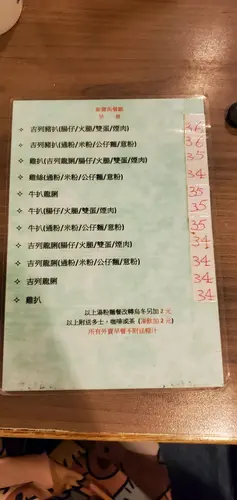 早餐
吉列豬扒(腸仔/火腿/雙蛋/煙肉) 36
吉列豬扒(通粉/米粉/公仔麵/意粉) 36
雞扒(吉列龍脷/腸仔/火腿/雙蛋/煙肉) 35
雞絲(通粉/米粉/公仔麵/意粉) 34
牛扒龍脷 35
牛扒(腸仔/火腿/雙蛋/煙肉) 35
牛扒(通粉/米粉/公仔麵/意粉) 35
吉列龍脷(腸仔/火腿/雙蛋/煙肉) 34
吉列龍脷(通粉/米粉/公仔麵/意粉) 34
吉列龍脷 34
雞扒 34
以上湯粉麵餐改轉烏冬另加2元
以上附送多士，咖啡或茶(凍飲加2元)
所有外賣早餐不附送橙汁